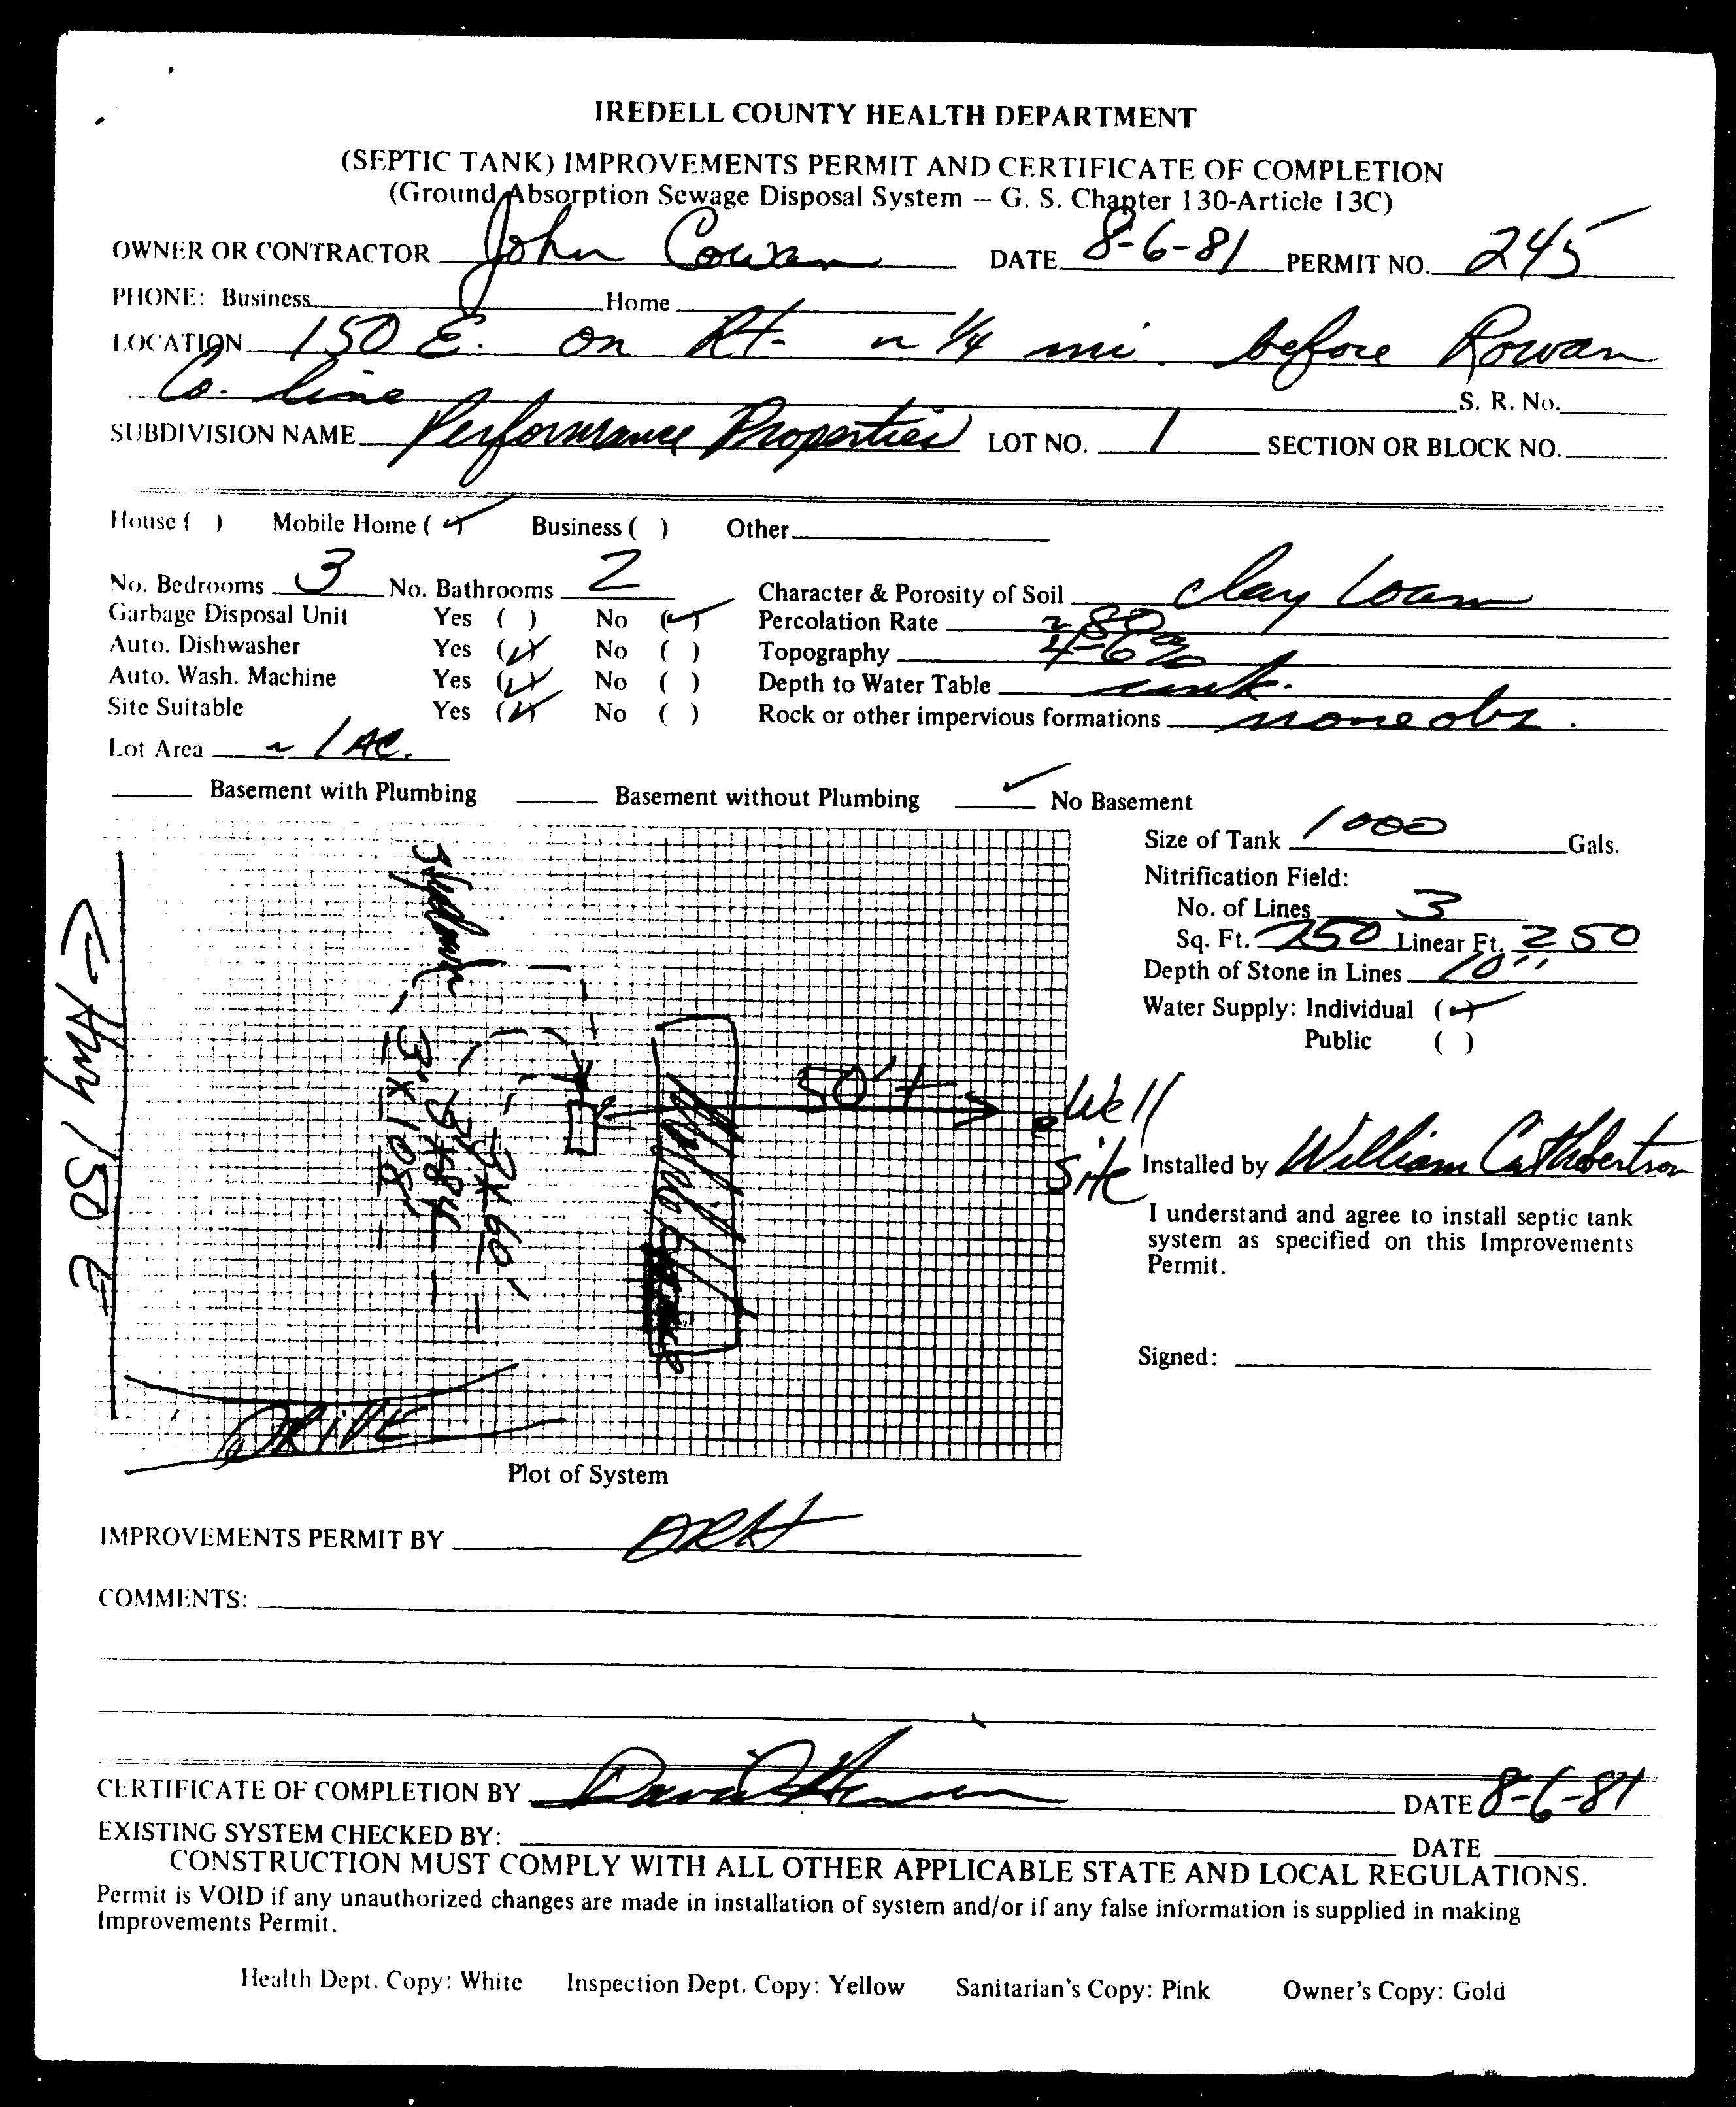 IREDELL COUNTY HEALTH DEPARTMENT
(SEPTIC TANK) IMPROVEMENTS PERMIT AND CERTIFICATE OF COMPLETION
(Ground Absorption Sewage Disposal System -- G. S. Chapter 130-Article 13C)
OWNER OR CONTRACTOR John Cowan DATE 8-6-81 PERMIT NO. 245
PHONE: Business Home
LOCATION 150 E. on Rt. ~ 1/4 mi. before Rowan
Co. line S. R. No.
SUBDIVISION NAME Performance Properties LOT NO. 1 SECTION OR BLOCK NO.
House ( ) Mobile Home (✓) Business ( ) Other
No. Bedrooms 3 No. Bathrooms 2 Character & Porosity of Soil clay loam
Garbage Disposal Unit Yes ( ) No (✓) Percolation Rate ~80
Auto. Dishwasher Yes (✓) No ( ) Topography 4-6%
Auto. Wash. Machine Yes (✓) No ( ) Depth to Water Table unk.
Site Suitable Yes (✓) No ( ) Rock or other impervious formations none obs.
Lot Area ~ 1 AC.
Basement with Plumbing Basement without Plumbing ✓ No Basement
Size of Tank 1000 Gals.
Nitrification Field:
No. of Lines 3
Sq. Ft. 750 Linear Ft. 250
Depth of Stone in Lines 10"
Water Supply: Individual (✓)
Public ( )
Hwy 150 E
3'x108'
3'x84'
3'x60'
50'+
Well
Site
DRIVE
Installed by William Cuthbertson
I understand and agree to install septic tank
system as specified on this Improvements
Permit.
Signed:
Plot of System
IMPROVEMENTS PERMIT BY DRH
COMMENTS:
CERTIFICATE OF COMPLETION BY DATE 8-6-81
EXISTING SYSTEM CHECKED BY: DATE
CONSTRUCTION MUST COMPLY WITH ALL OTHER APPLICABLE STATE AND LOCAL REGULATIONS.
Permit is VOID if any unauthorized changes are made in installation of system and/or if any false information is supplied in making
Improvements Permit.
Health Dept. Copy: White Inspection Dept. Copy: Yellow Sanitarian's Copy: Pink Owner's Copy: Gold